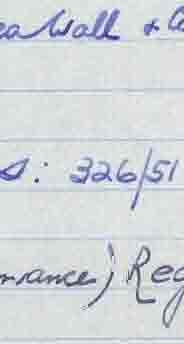 ea Wall &
s: 326/51
nsurance) Reg